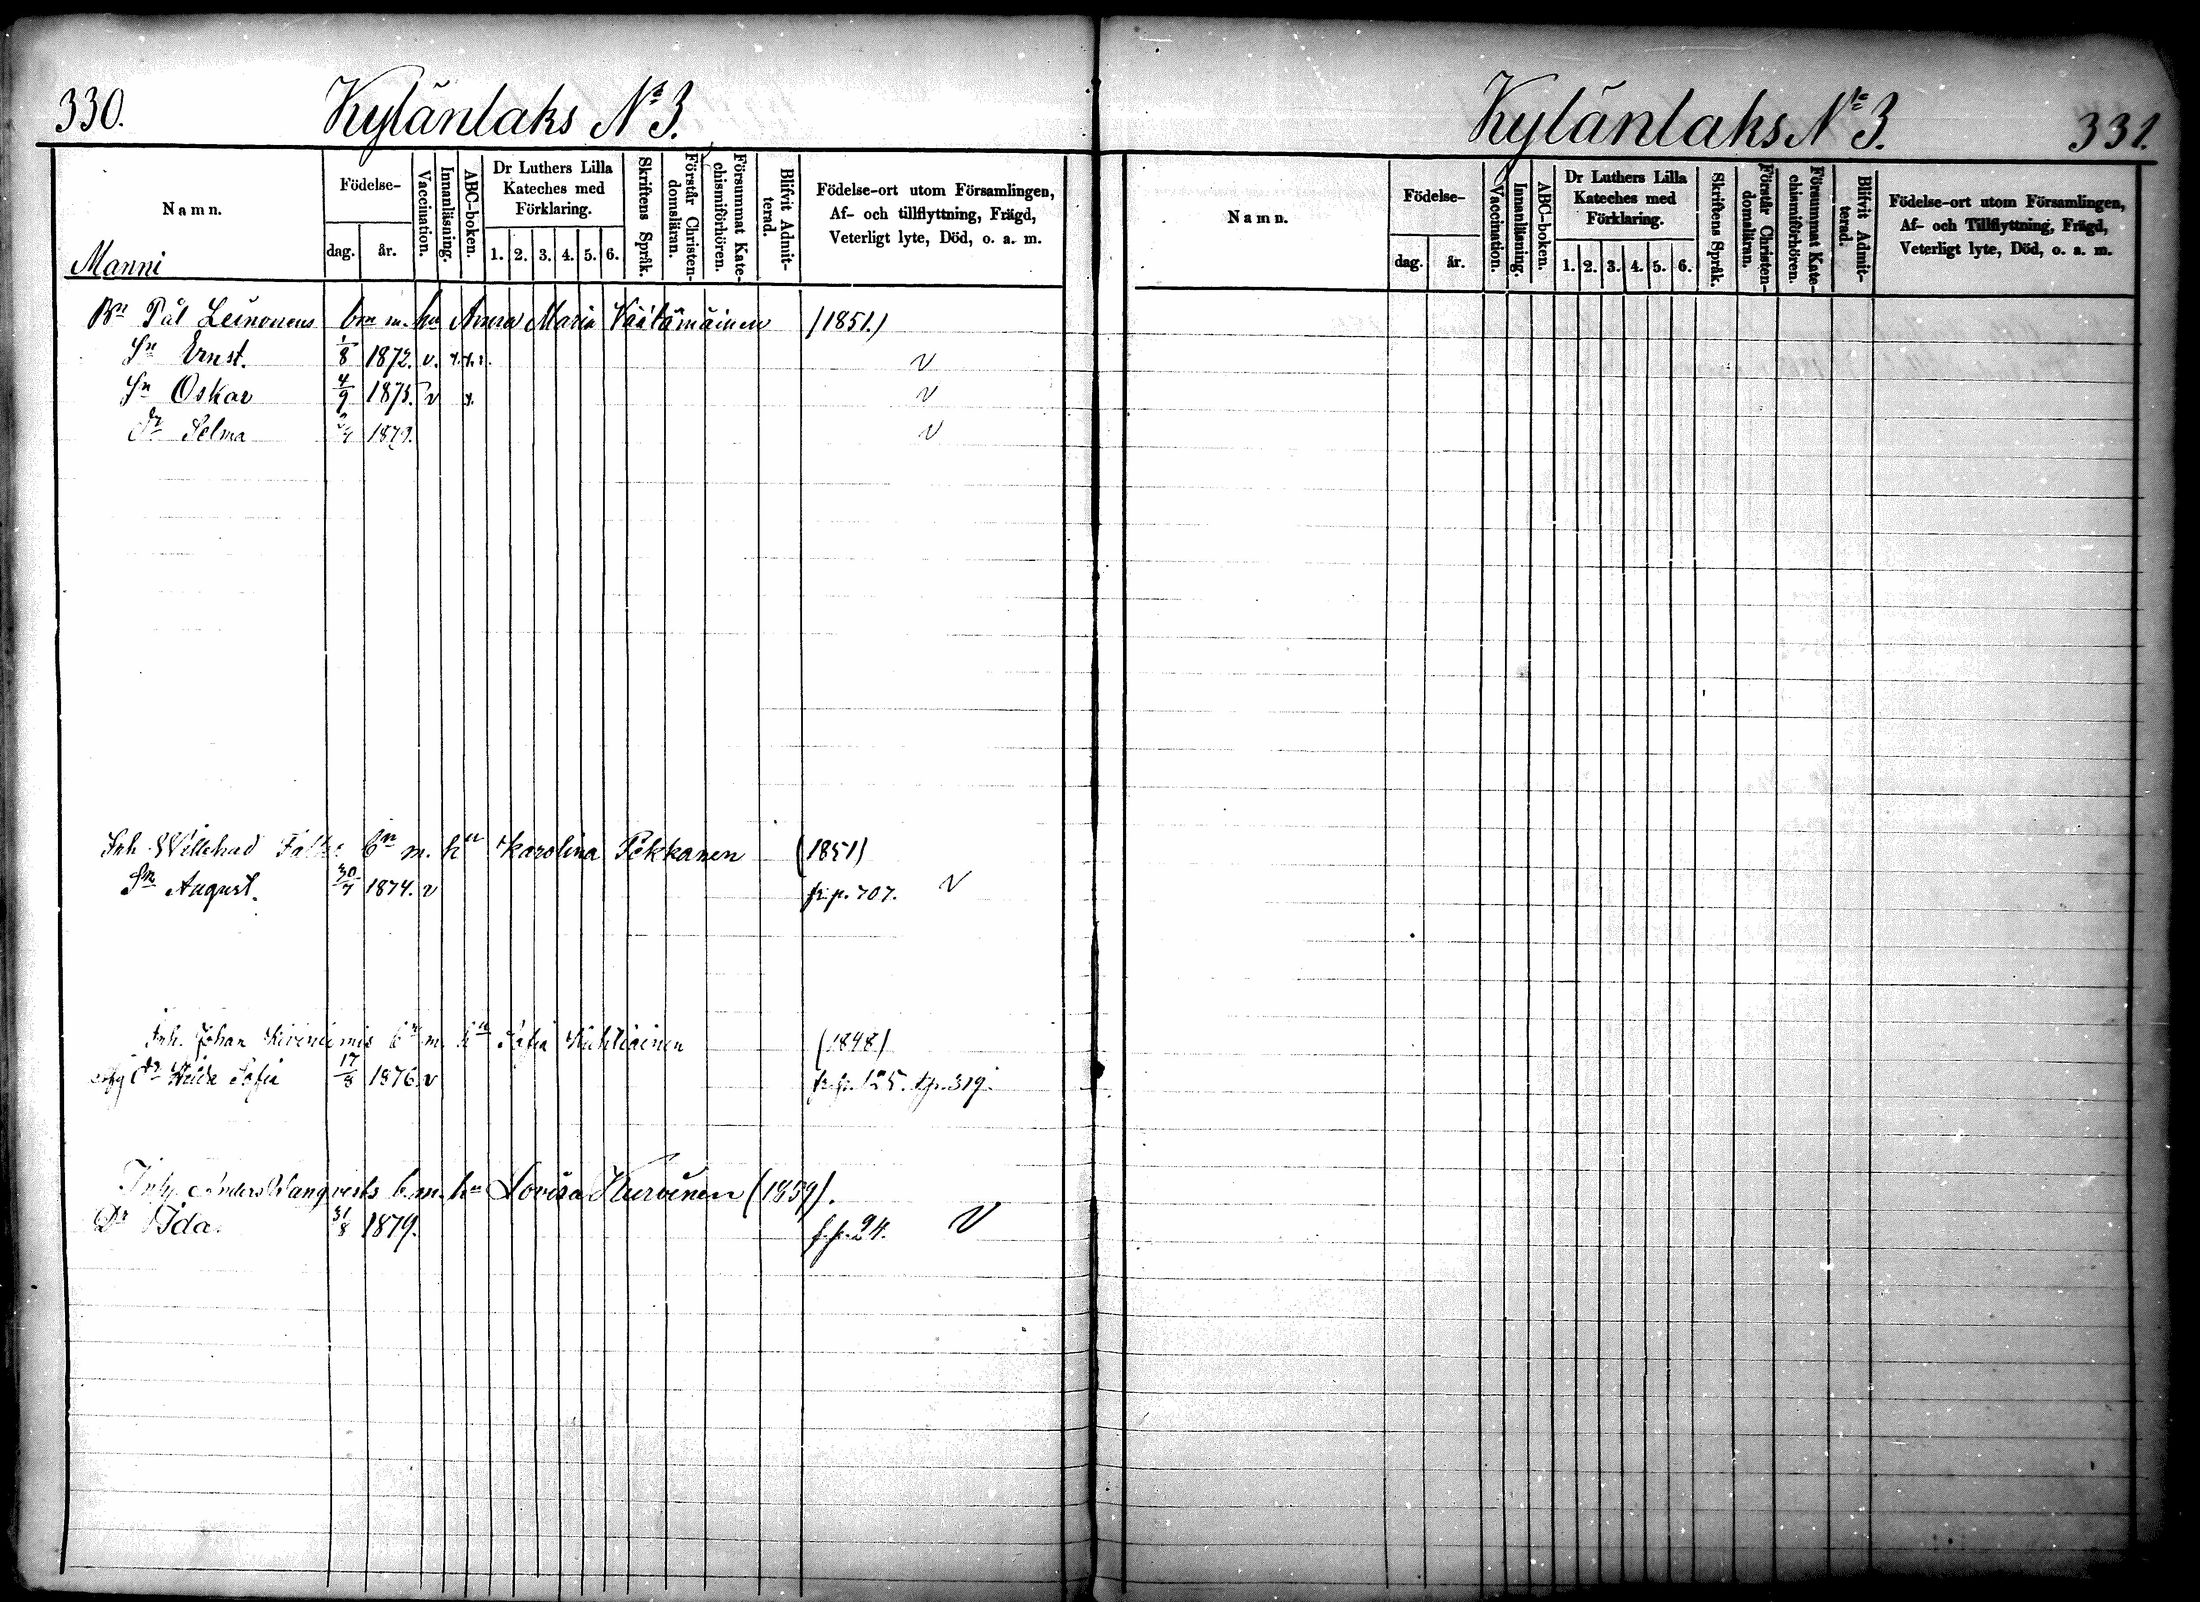 330. Kylänlaks No 3.
Namn.
Födelse-
dag. år.
Vaccination.
Innanläsning.
ABC-boken.
Dr Luthers Lilla
Kateches med
Förklaring.
1. 2. 3. 4. 5. 6.
Skriftens Språk.
Förstår Christen-
domsläran.
Försummat Kate-
chismiförhören.
Blifvit Admit-
terad.
Födelse-ort utom Församlingen,
Af- och tillflyttning, Frägd,
Veterligt lyte, Död, o. a. m.
Manni
Bn Pål Leinonens bn m. hu Anna Maria Väätämäinen (1851.)
Sn Ernst. 1/8 1872. v. x. x. v
Sn Oskar 4/9 1875. v x. v
Dr Selma 1879. v
Inh. Willehad bn m. hu Karolina Pekkanen (1851)
Sn August. 30/7 1874. v fr. p. 707. v
Inh. Johan Kiviniemis bn m. hu Sofia (1848)
Dr Sofia 17/8 1876 v fr. p. 125. t. p. 319.
Inh. Anders b. m. hu Lovisa Hurvinen (1859).
Dr Ida. 31/8 1879. f. p. 24. v
Kylänlaks No 3. 331.
Namn.
Födelse-
dag. år.
Vaccination.
Innanläsning.
ABC-boken.
Dr Luthers Lilla
Kateches med
Förklaring.
1. 2. 3. 4. 5. 6.
Skriftens Språk.
Förstår Christen-
domsläran.
Försummat Kate-
chismiförhören.
Blifvit Admit-
terad.
Födelse-ort utom Församlingen,
Af- och Tillflyttning, Frägd,
Veterligt lyte, Död, o. a. m.